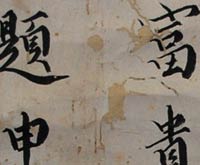 富貴
題申